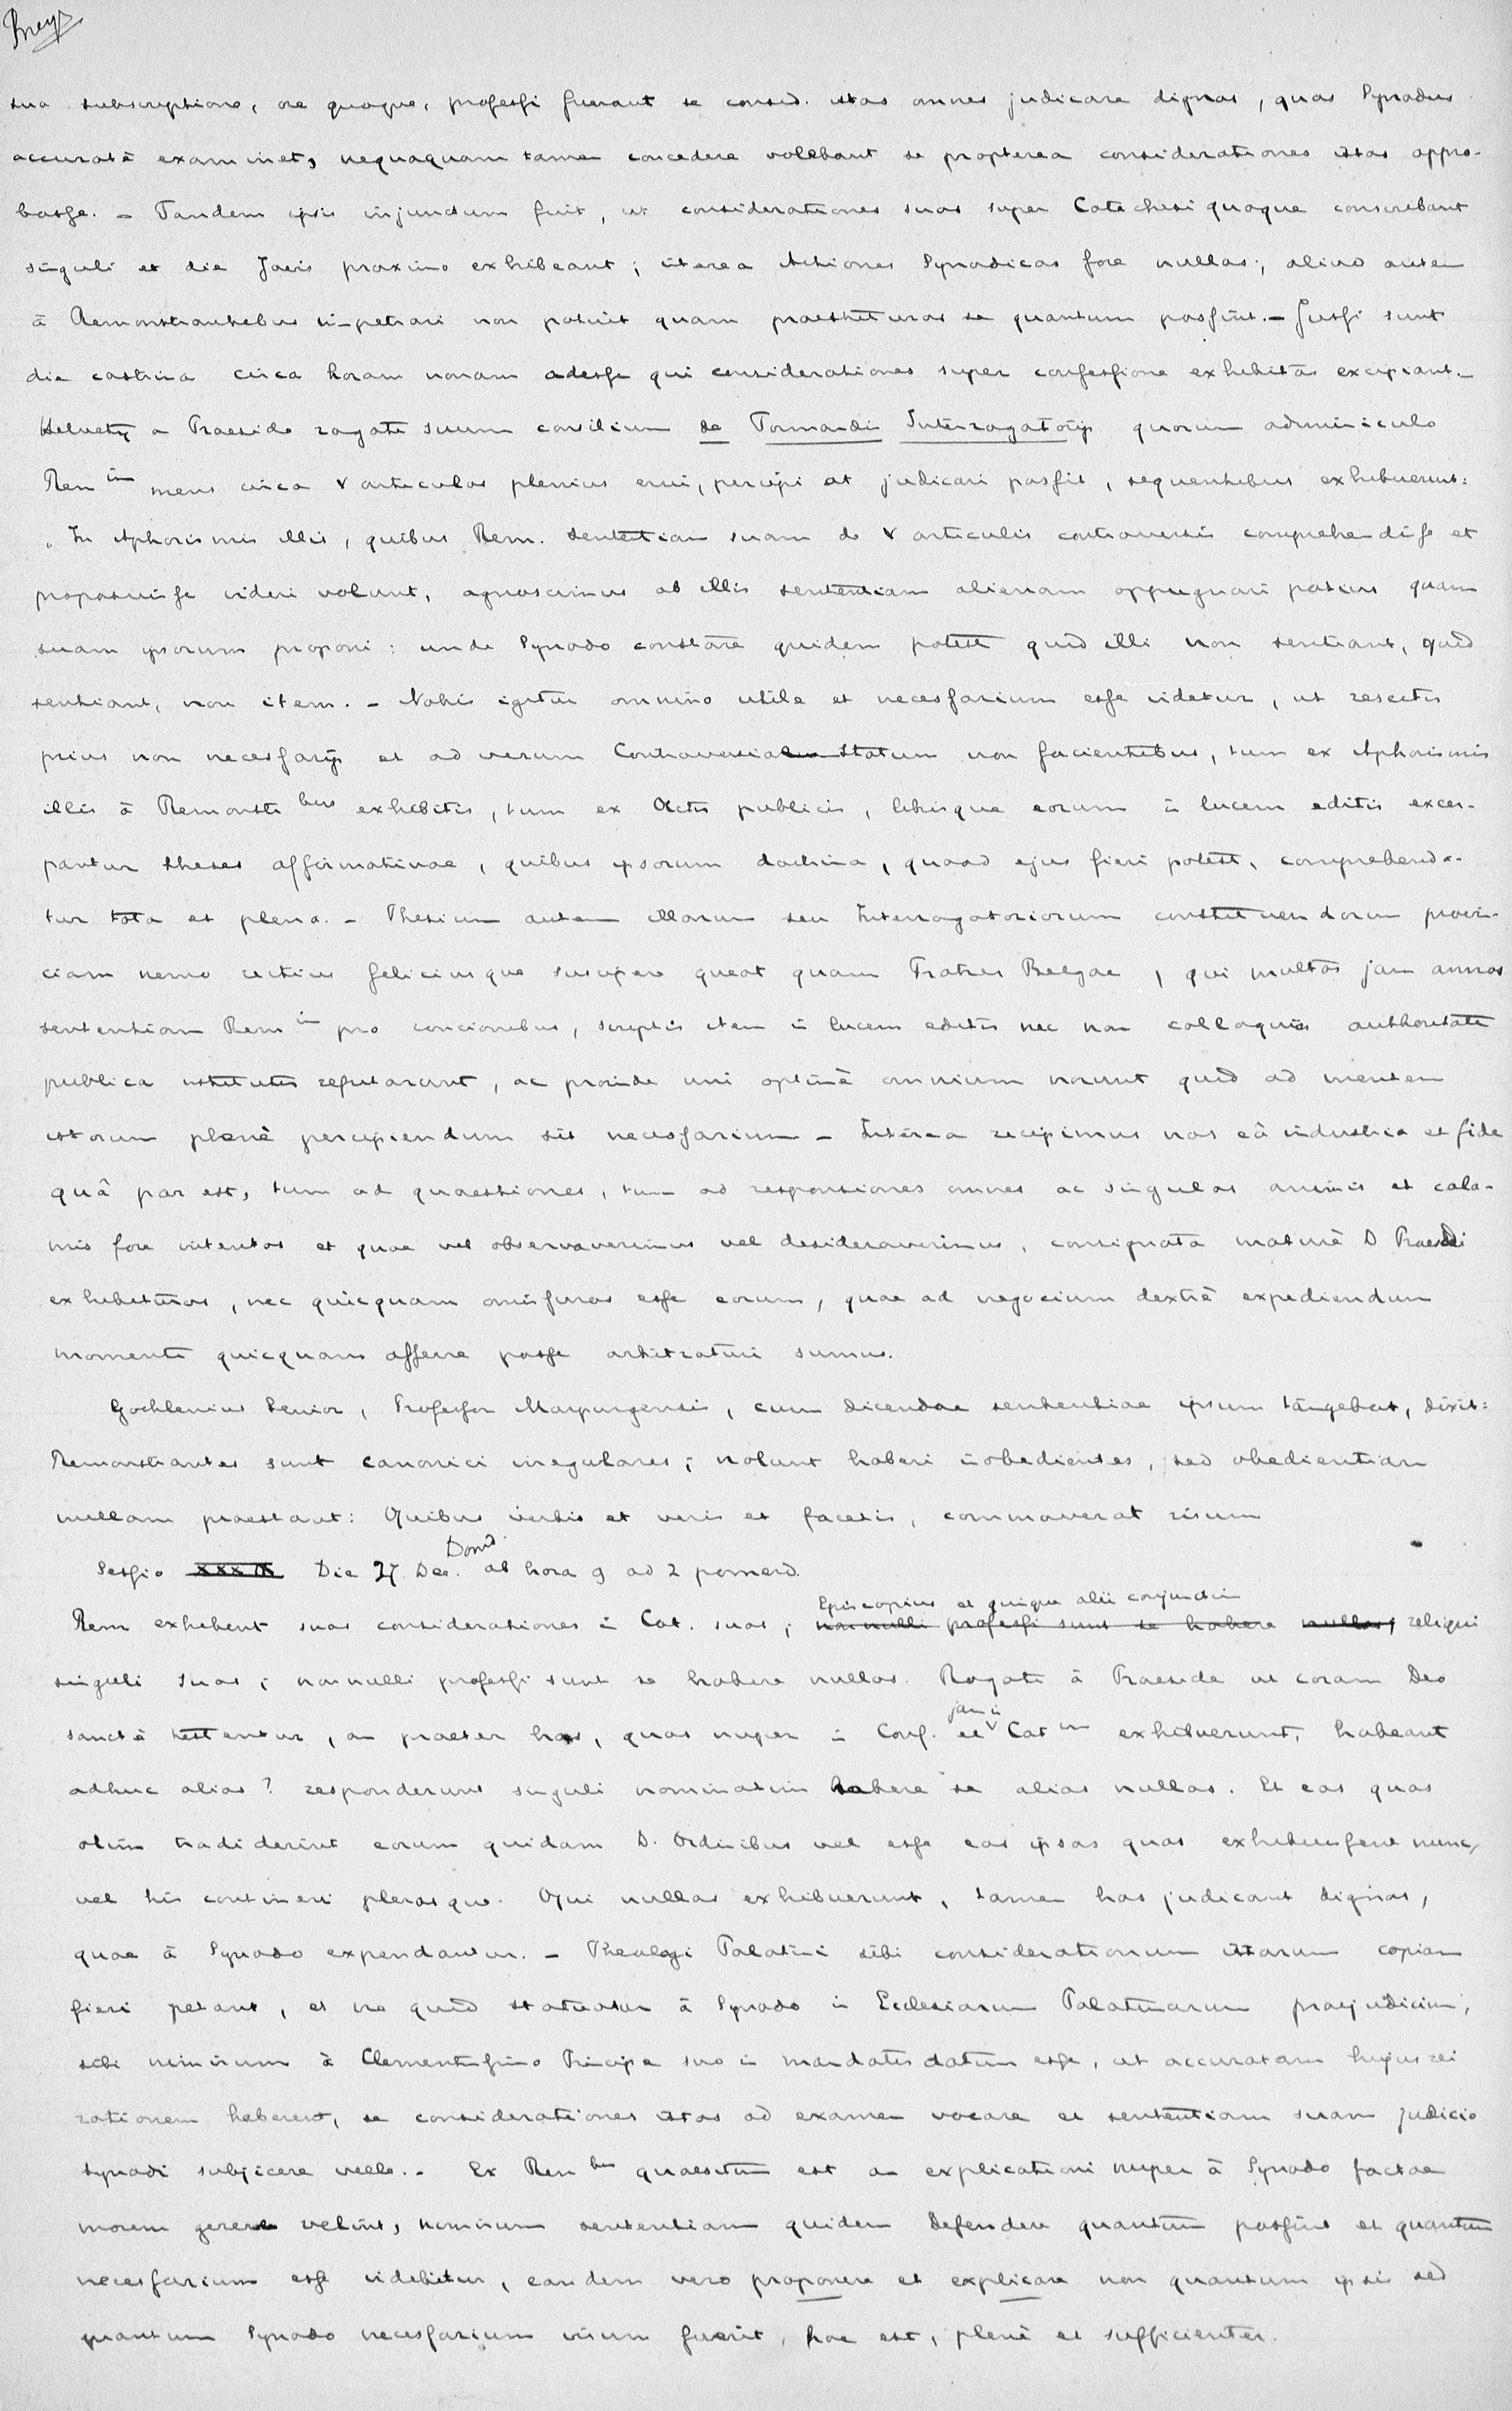 sua subscriptione, ore quoque, professi fuerant se consid. istas omnes judicare dignas, quas Synodus
accuratè examinet, nequaquam tamen concedere volebant se propterea considerationes istas appro-
basse. - Tandem ipsis injunctum fuit, ut considerationes suas super Catechesi quoque conscribant
singuli et die Jovis proximo exhibeant; interea Actiones Synodicas fore nullas; aliud autem
à Remonstrantibus impetrari non potuit quam praestituros se quantum possint. - Jussi sunt
die crastina circa horam nonam adesse qui considerationes super confessione exhibitas excipiant. -
Helvetij a Praeside rogati suum consilium de Formandis Interrogatorijs quorum adminiculo
Rem in mens circa V articulos plenius erui, percipi et judicari possit, sequentibus exhibuerunt:
„ In Aphorismis illis, quibus Rem. sententiam suam de V articulis controversis comprehendisse et
proposuisse videri volunt, agnoscimus ab illis sententiam alienam oppugnari potius quam
suam ipsorum proponi: unde Synodo constare quidem potest quid illi non sentiant, quid
sentiant, non item. - Nobis igitur omnino utile et necessarium esse videtur, ut resectis
prius non necessarijs et ad verum Controversiae Statum non facientibus, tum ex Aphorismis
illis à Remonstr bus exhibitis, tum ex Actis publicis, librisque eorum in lucem editis excer-
pantur theses affirmativae, quibus ipsorum doctrina, quoad ejus fieri potest, comprehenda-
tur tota et plena. - Thesium autem illarum seu Interrogatoriorum constituendorum provin-
ciam nemo rectius feliciusque suscipere queat quam Fratres Belgae, qui multos jam annos
sententiam Rem in pro concionibus, scriptis item in lucem editis nec non colloquiis authoritate
publica institutis refutarunt, ac proinde uni optimè omnium norunt quid ad mentem
istorum planè percipiendum sit necessarium - Interea recipimus nos eâ industria et fide
quâ par est, tum ad quaestiones, tum ad responsiones omnes ac singulas animis et cala-
mis fore intentos et quae vel observaverimus vel desideraverimus, consignata maturè D Praesidi
exhibituros, nec quicquam omissuros esse eorum, quae ad negocium dextrè expediendum
momenti quicquam afferre posse arbitraturi sumus.
Gochlenius Senior, Professor Marpurgensis, cum dicendae sententiae ipsum tangebat, dixit:
Remonstrantes sunt canonici irregulares; nolunt haberi inobedientes, sed obedientiam
nullam praestant: Quibus verbis et veris et facetis, commoverat risum
Sessio XXXIX Die 27 Dec. ab hora 9 ad 2 pomerid.
Rem exhibent suas considerationes in Cat. suas; Episcopius et quinque alii conjunctim nonnulli professi sunt se habere nullas; reliqui
singuli suas; nonnulli professi sunt se habere nullas. Rogati à Praeside ut coram Deo
sanctè testentur, an praeter has, quas nuper in Conf. et jam in Cat m exhibuerunt, habeant
adhuc alias? responderunt singuli nominatim habere se alias nullas. Et eas quas
olim tradiderint eorum quidam D. Ordinibus vel esse eas ipsas quas exhibuissent nunc,
vel his contineri plerasque. Qui nullas exhibuerunt, tamen has judicant dignas,
quae à Synodo expendantur. - Theologi Palatini sibi considerationum istarum copiam
fieri petant, et ne quid statuatur à Synodo in Ecclesiarum Palatinarum praejudicium,
sibi nimirum à Clementissimo Principe suo in mandatis datum esse, ut accuratam hujus rei
rationem haberent, se considerationes istas ad examen vocare et sententiam suam judicio
synodi subjicere velle. - Ex Rem bus quaesitum est an explicationi nuper à Synodo factae
morem gerere velint, nimirum sententiam quidem defendere quantum possint et quantum
necessarium esse videbitur, eandem vero proponere et explicare non quantum ipsis sed
quantum Synodo necessarium visum fuerit, hoc est, plenè et sufficienter.